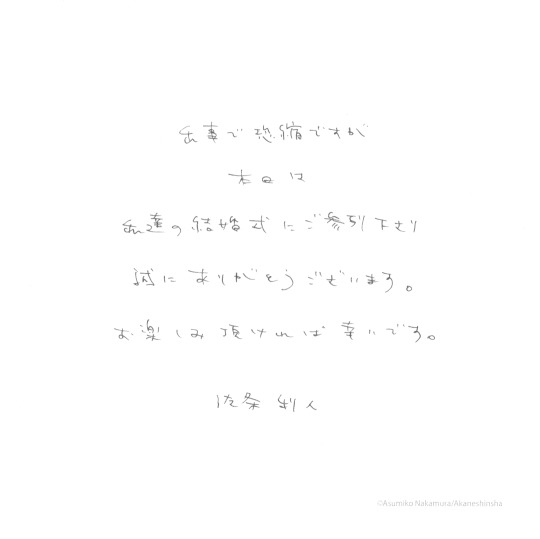 私事で恐縮ですが
本日は
私達の結婚式にご参列下さり
誠にありがとうございます。
お楽しみ頂ければ幸いです。
佐条 利人
©Asumiko Nakamura/Akaneshinsha